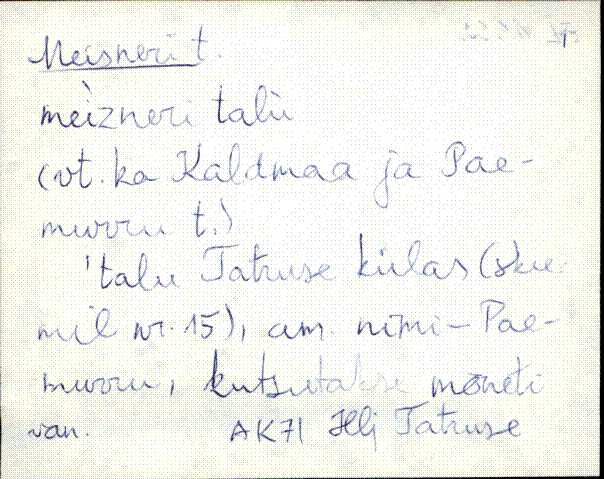 Meisneri t.
mèizneri talù
(vt. ka Kaldmaa ja Pae-
murru t.)
'talu Tatruse külas (ske-
mil nr. 15), am. nimi - Pae-
murru, kutsutakse mõneti
van. AK71 Hlj Tatruse